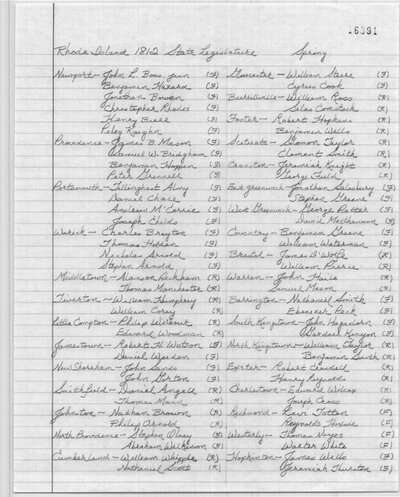 16391
Rhode Island 1812 State Legislature Spring
Newport - John L. Boss, jun (F) Gloucester - William Steere (F)
Benjamin Hazard (F) Cyrus Cook (F)
Jonathan Bowen (F) Burrillville - William Ross (R)
Christopher Rhodes (F) Salas Comstock (R)
Henry (F) Foster - Robert Hopkins (R)
Peleg (F) Benjamin Wells (R)
Providence - James B. Mason (F) Scituate - Solomon Taylor (R)
Samuel W. Bridgham (F) Clement Smith (R)
Benjamin Hoppin (F) Cranston - Jeremiah Knight (R)
Peter Grinnell (F) George Field (R)
Portsmouth - Tillinghast Almy (F) East Greenwich - Jonathan Salisbury (F)
Daniel Chace (F) Stephen Greene (F)
Andrew M'Corrie (F) West Greenwich - George Potter (F)
Joseph Childs (F) David Matthewson (F)
Warwick - Charles Brayton (F) Coventry - Benjamin Greene (F)
Thomas Holden (F) William Waterman (F)
Nicholas Arnold (F) Bristol - James D'Wolfe (R)
Stephen Arnold (F) William Pearce (R)
Middletown - Alanson Peckham (R) Warren - John Haile (R)
Thomas Manchester (R) Samuel Mason (R)
Tiverton - William Humphrey (R) Barrington - Nathaniel Smith (F)
William Corey (R) Ebenezer Peck (F)
Little Compton - Philip Wilbour (R) South Kingstown - John Hagadorn (F)
Edward Woodman (R) Gardner Kenyon (F)
Jamestown - Robert H. Watson (F) North Kingstown - William Taylor (R)
Daniel Weeden (F) Benjamin Smith (R)
New Shoreham - John Sands (F) Exeter - Robert Crandell (R)
John Gorton (F) Henry Reynolds (R)
Smithfield - Daniel Angell (R) Charlestown - Edward Wilcox (R)
Thomas Mann (R) Joseph Cross (R)
Johnston - Nathan Brown (R) Richmond - Levi Totten (F)
Philip Arnold (R) Reynolds Hoxsie (F)
North Providence - Stephen Olney (R) Westerly - Thomas Noyes (F)
Abraham Wilkinson (F) Walter White (F)
Cumberland - William Whipple (R) Hopkinton - James Wells (F)
Nathaniel Scott (R) Jeremiah Thurston (F)